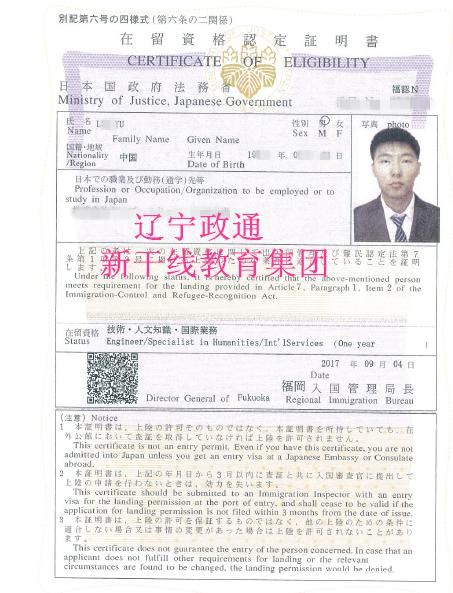 別記第六号の四様式(第六条の二関係)
在留資格認定証明書
CERTIFICATE OF ELIGIBILITY
日本国政府法務省
福認N
Ministry of Justice, Japanese Government
氏名
性別 男 女 写真 photo
Name YU Sex M F
Family Name Given Name
国籍・地域
Nationality 中国 生年月日 19
/Region Date of Birth
日本での職業及び勤務(通学)先等
Profession or Occupation/Organization to be employed or to
study in Japan
辽宁政通
新干线教育集团
Under the following status, it is hereby certified that the above-mentioned person
meets requirement for the landing provided in Article 7, Paragraph 1, Item 2 of the
Immigration-Control and Refugee-Recognition Act.
在留資格 技術・人文知識・国際業務
Status Engineer/Specialist in Humanities/Int'lServices (One year )
2017 年 09 月 04 日
Date
福岡 入国管理局長
Director General of Fukuoka Regional Immigration Bureau
(注意) Notice
1 本証明書は、上陸の許可そのものではなく、本証明書を所持していても、在
外公館において査証を取得していなければ上陸を許可されません。
This certificate is not an entry permit. Even if you have this certificate, you are not
admitted into Japan unless you get an entry visa at a Japanese Embassy or Consulate
abroad.
2 本証明書は、上記の年月日から3月以内に査証と共に入国審査官に提出して
上陸の申請を行わないときは、効力を失います。
This certificate should be submitted to an Immigration Inspector with an entry
visa for the landing permission at the port of entry, and shall cease to be valid if the
application for landing permission is not filed within 3 months from the date of issue.
3 本証明書は、上陸の許可を保証するものではなく、他の上陸のための条件に
適合しない場合又は事情の変更があった場合は上陸を許可されないことがあり
ます。
This certificate does not guarantee the entry of the person concerned. In case that an
applicant does not fulfill other requirements for landing or the relevant
circumstances are found to be changed, the landing permission would be denied.